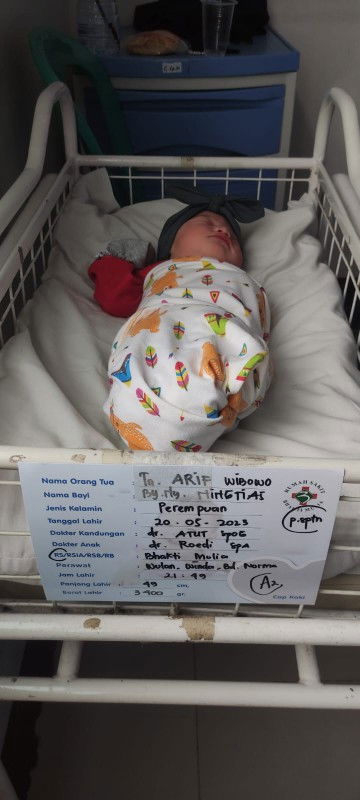 Nama Orang Tua : Tn. ARIF WIBOWO
Nama Bayi : By. Ny. MINGTIAS
Jenis Kelamin : Perempuan
Tanggal Lahir : 20 - 05 - 2023
Dokter Kandungan : dr. ATUT SpOG
Dokter Anak : dr. Roedi SpA
RS/RSIA/RSB/RB : Bhakti Mulia
Perawat : Wulan, Winda, Bd. Norma
Jam Lahir : 21.49
Panjang Lahir : 49 cm.
Berat Lahir : 3400 gr.
RUMAH SAKIT
P. sptn
A2
Cap Kaki